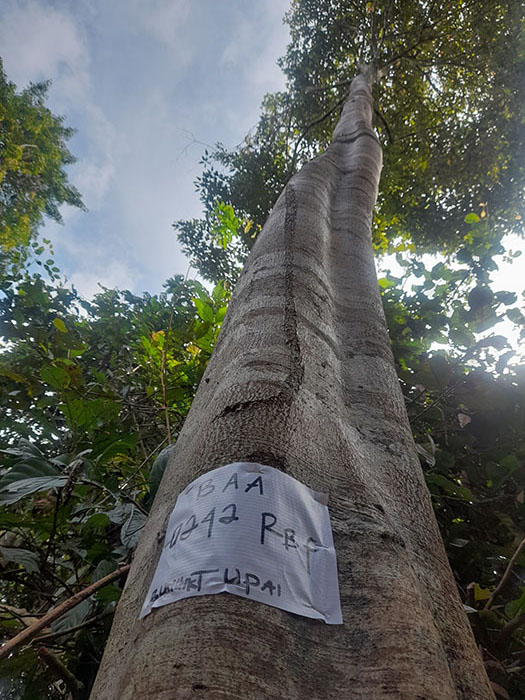 BAA
0242 RBF
BUKIT UPAI